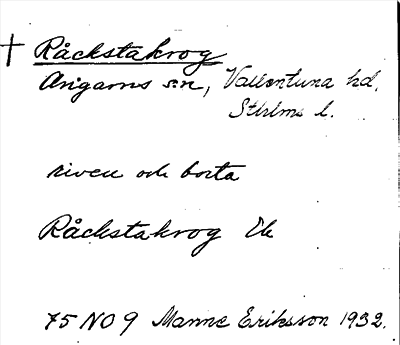 † Råckstakrog
Angarns s:n, Vallentuna hd.
Sthlms l.
riven och borta
Råckstakrog Ek
75 NO 9 Manne Eriksson 1932.